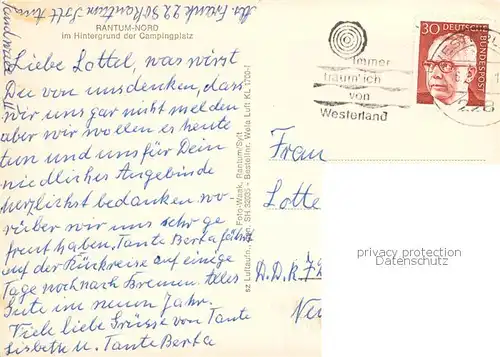 RANTUM-NORD
im Hintergrund der Campingplatz
Liebe Lottel, was wirst
Du von uns denken, dass
wir uns gar nicht melden
aber wir wollen es heute
tun und uns für Dein
niedliches Angebinde
herzlichst bedanken wo
rüber wir uns sehr ge
freut haben. Tante Berta fährt
auf der Rückreise auf einige
Tage noch nach Bremen. Alles
Gute im neuen Jahr.
Viele liebe Grüsse von Tante
Lisbeth u. Tante Berta
Foto-Waak, Rantum/Sylt
Bestellnr. Wela Luft KL 1700-1
Immer
träum' ich
von
Westerland
30 DEUTSCHE BUNDESPOST
Frau
Lotte
D.D.R.
privacy protection
Datenschutz